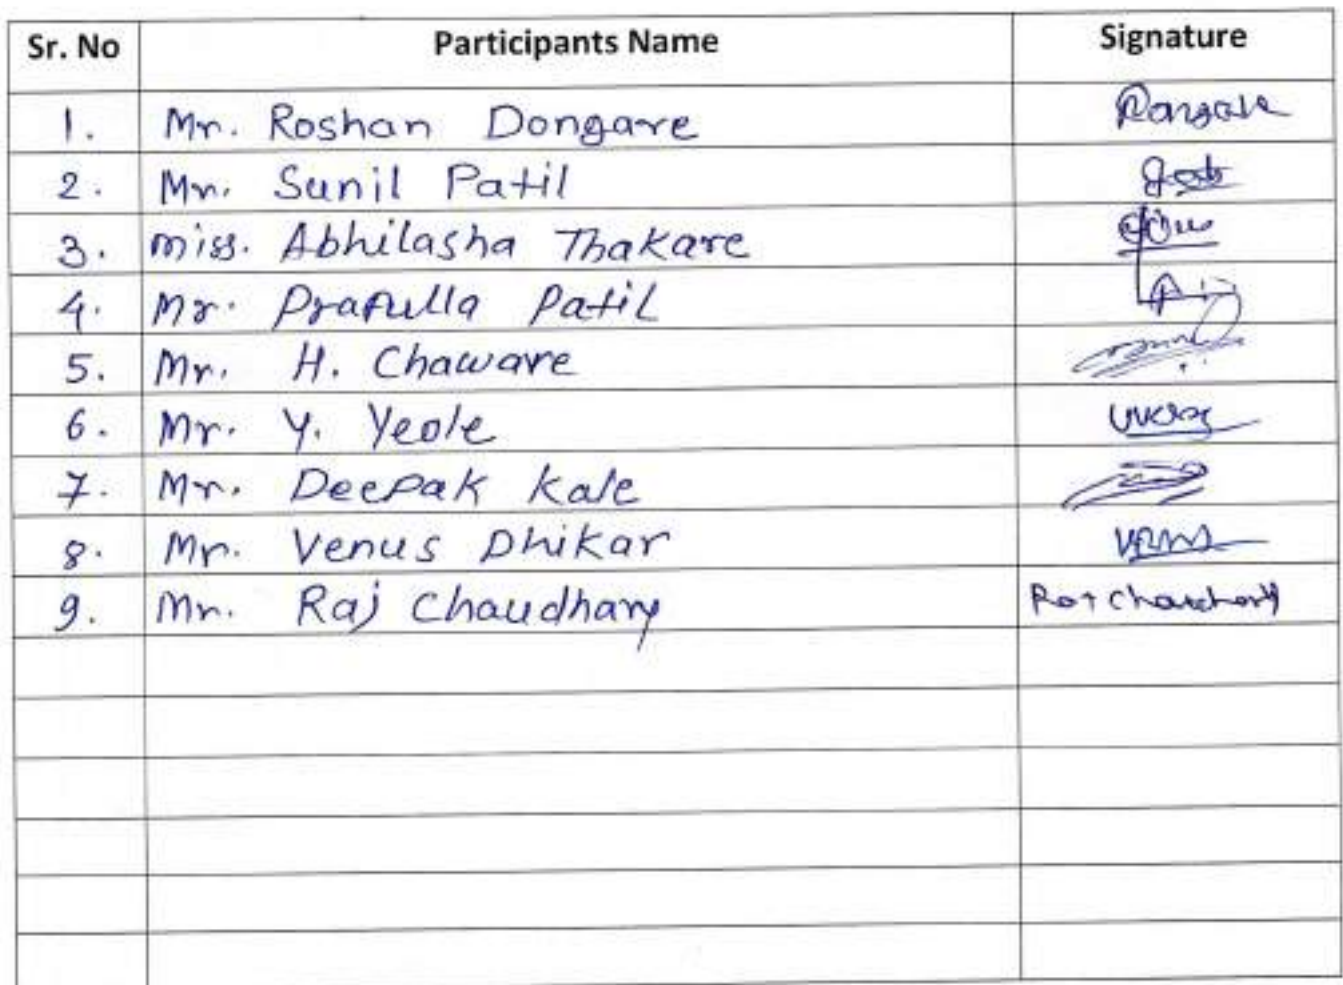 Sr. No Participants Name Signature
1. Mr. Roshan Dongare
2. Mr. Sunil Patil
3. Miss. Abhilasha Thakare
4. Mr. Prafulla Patil
5. Mr. H. Chaware
6. Mr. Y. Yeole
7. Mr. Deepak Kale
8. Mr. Venus Dhikar
9. Mr. Raj Chaudhary